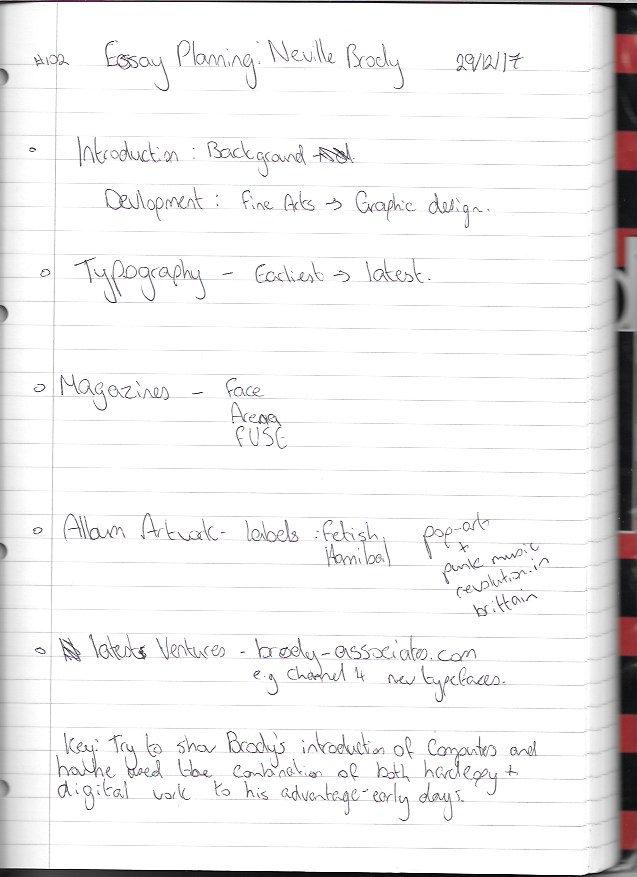 #102 Essay Planning: Neville Brody 29/12/17
Introduction : Background
Devlopment : Fine Arts → Graphic design.
Typography - Earliest → latest.
Magazines - Face
Arena
FUSE
Album Artwork - labels : fetish,
Hannibal
pop-art
+
punk music
revolution in
brittain
latest Ventures - brody-associates.com
e.g Channel 4 new typefaces.
Key: Try to show Brody's introduction of Computers and
how he used the combination of both hardcopy +
digital work to his advantage - early days.